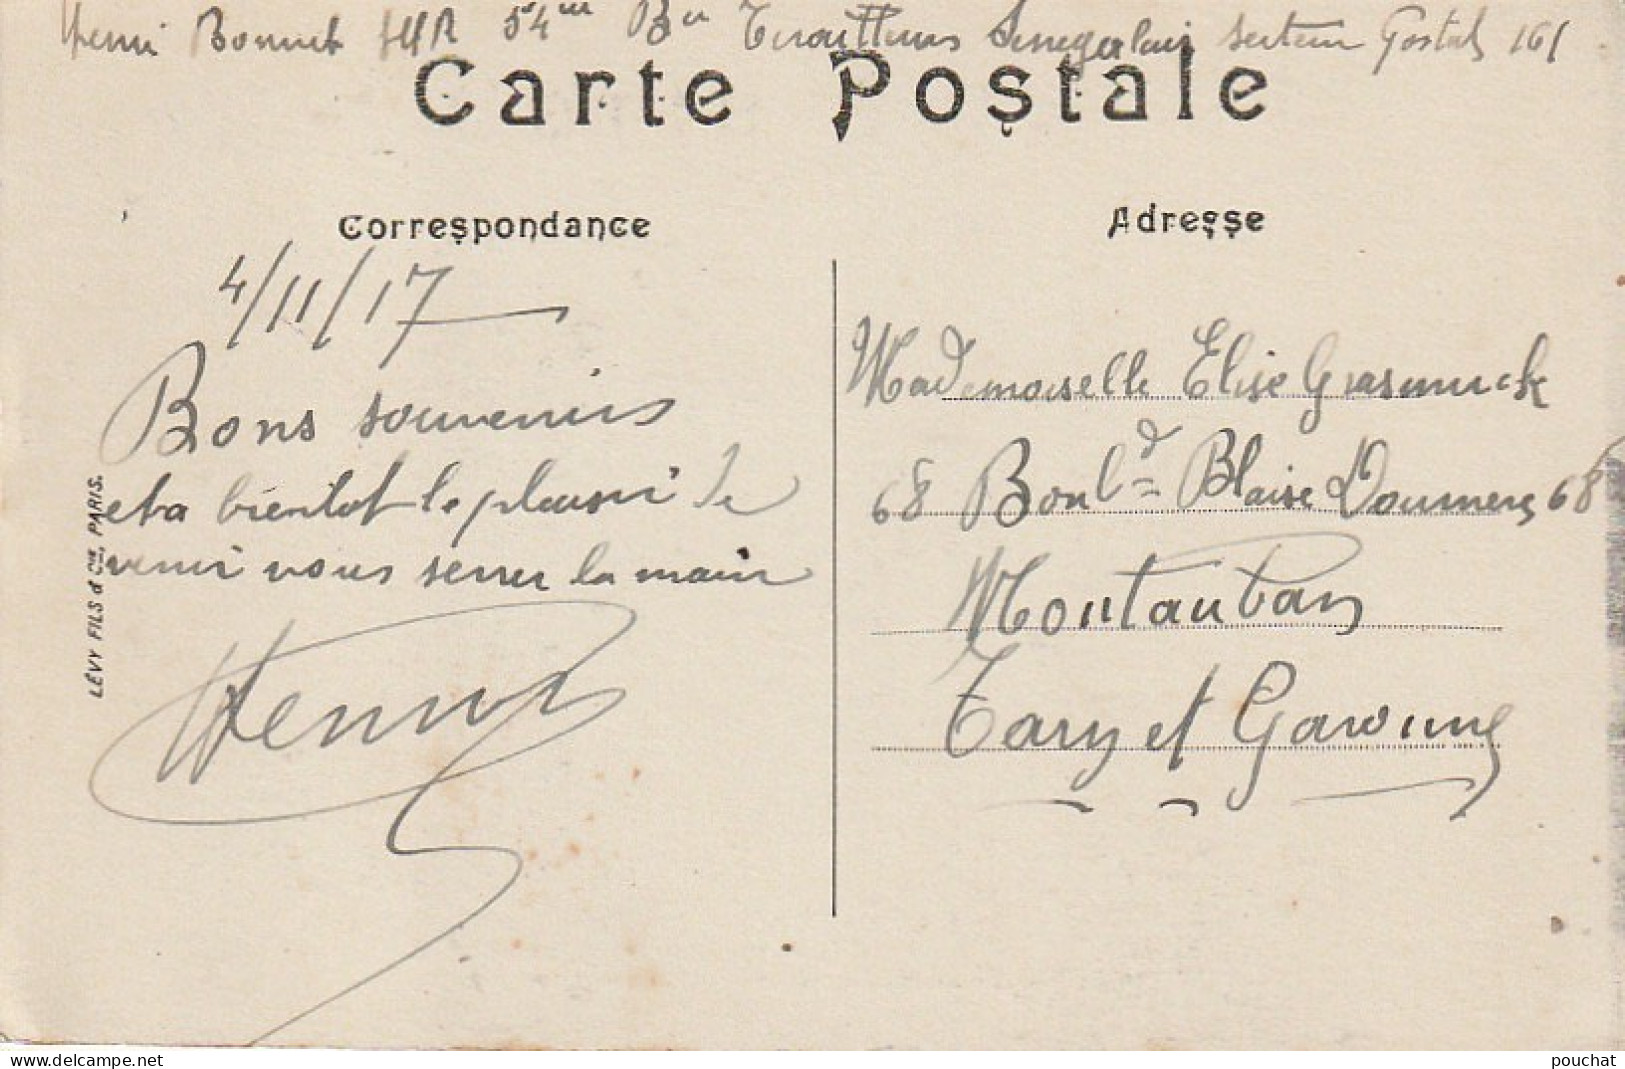 Henri Bonnet SHR 54me Bon Tirailleurs Senegalais secteur Postal 161
Carte Postale
Correspondance
4/11/17
Bons souvenirs
et a bientot le plaisir de
venir vous serrer la main
Henri
LÉVY FILS & Cie, PARIS.
Adresse
Mademoiselle Elise Grasmuck
68 Boul d = Blaise Doumerg 68
Montauban
Tarn et Garonne
www.delcampe.net
pouchat